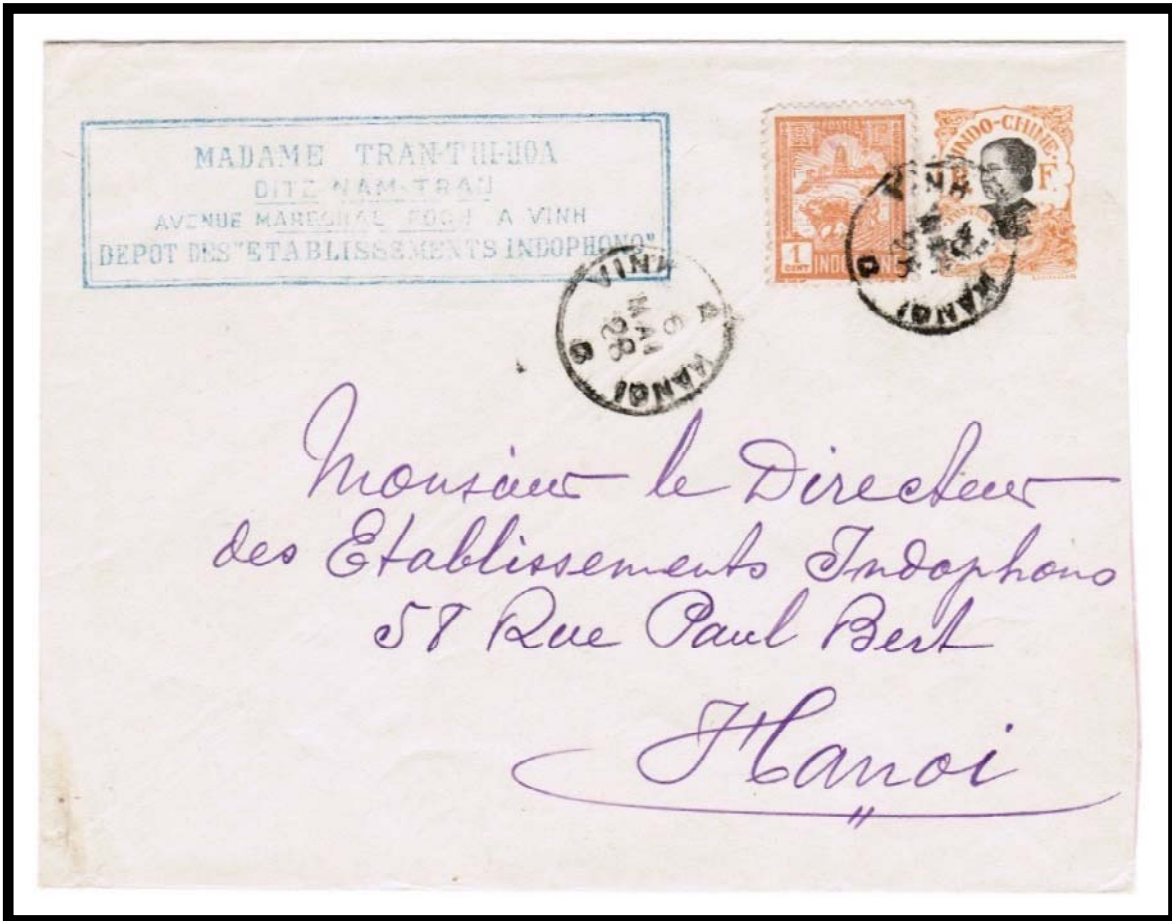 MADAME TRAN-THI-HOA
DITE NAM-TRAN
AVENUE MARECHAL FOCH A VINH
DEPOT DES "ETABLISSEMENTS INDOPHONO"
POSTES
1
CENT
INDOCHINE
INDO-CHINE
R F
VINH A HANOI
VINH A HANOI
6
MAI
28
B
Monsieur le Directeur
des Etablissements Indophono
58 Rue Paul Bert
Hanoi